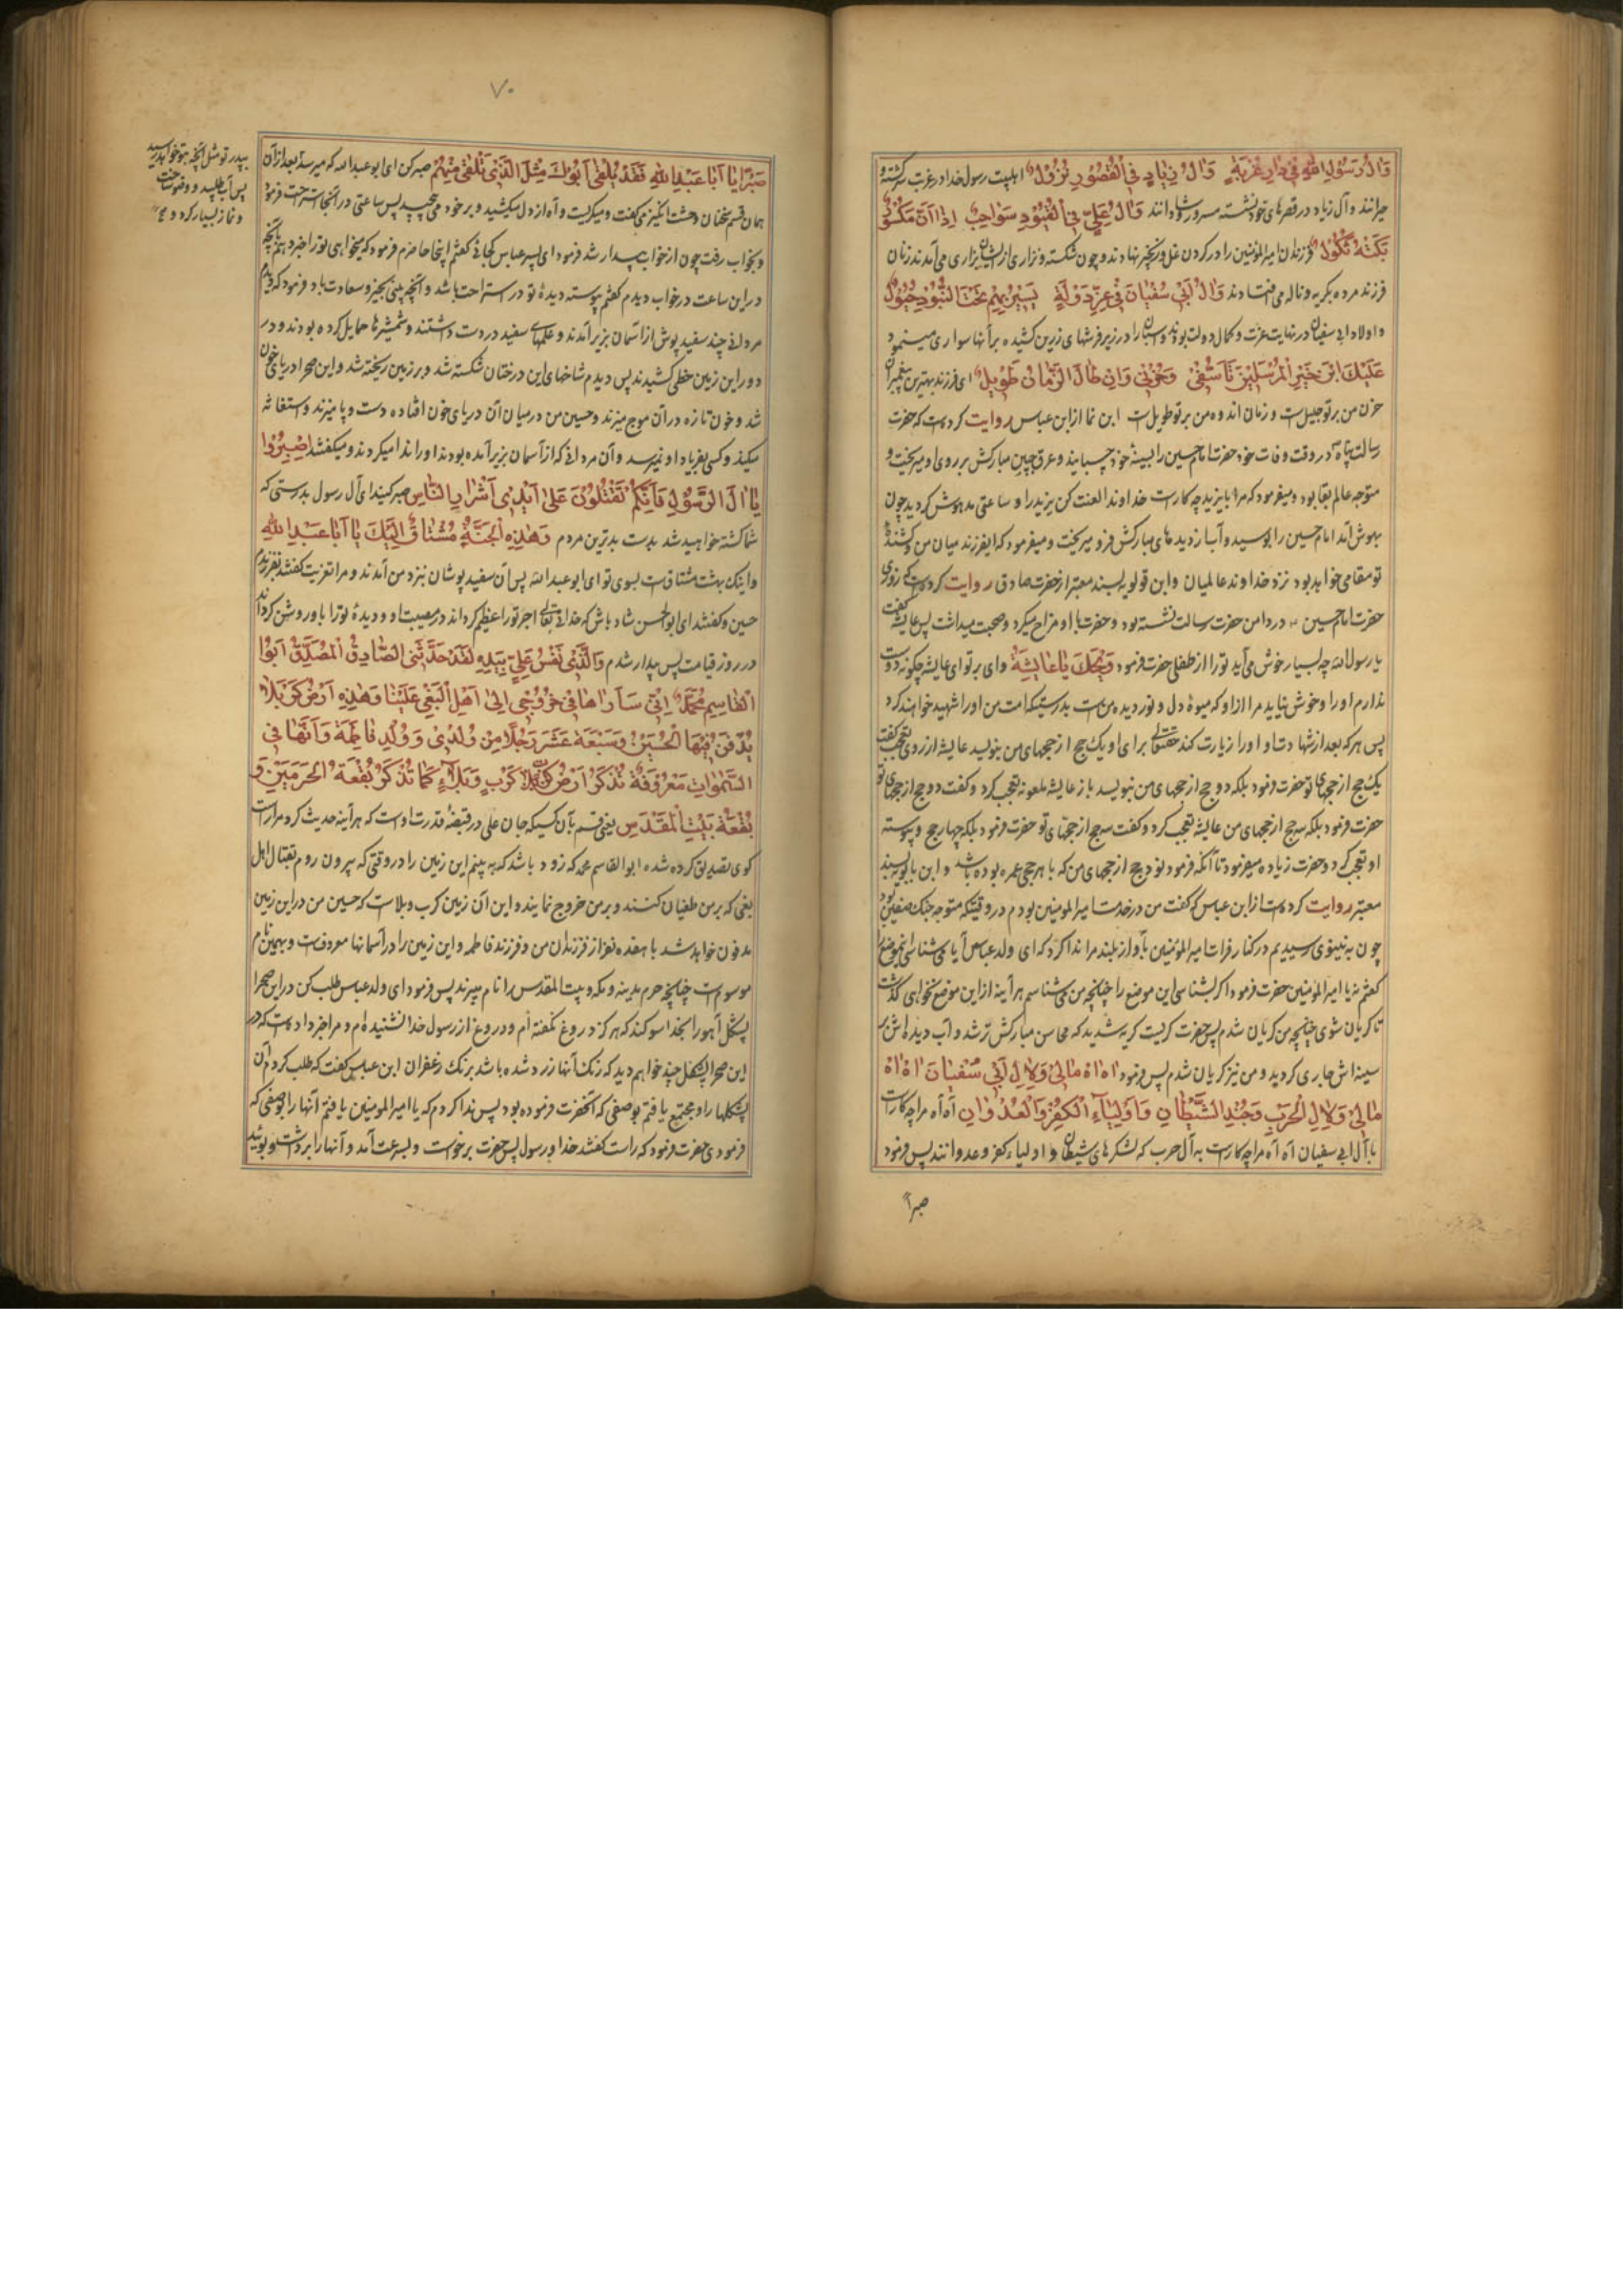 وَآلُ رَسُولِ اللهِ فِي دَارِ غُرْبَةٍ وَآلُ زِيَادٍ فِي الْقُصُورِ نُزُولُ اهلبیت رسول خدا در غربت سرکشته و
حیرانند وآل زیاد در قصرهای خود نشسته مسرور و شادانند وَآلُ عَلِيٍّ فِي الْقُيُودِ سَوَاحِبُ اِذَا اَنَّ
بَكَتْهُ ثَكُولُ فرزندان امیرالمؤمنین را در کردن غل و زنجیر نهادند و چون شکسته و نزاری از ایشان بزاری می آمدند زنان
فرزند مرده بکریه و ناله می فتادند وَآلُ اَبِي سُفْيَانَ فِي عِزِّ دَوْلَةٍ يَسِيرُ بِهِمْ تَحْتَ الْبُنُودِ خُيُولُ
و اولاد ابی سفیان در نهایت عزت و کمال دولت بودند و اسبان را در زیر فرشهای زرین کشیده بر آنها سواری مینمود
عَلَيْكَ ابْنَ خَيْرِ الْمُرْسَلِينَ تَأَسُّفِي وَحُزْنِي وَاِنْ طَالَ الزَّمَانُ طَوِيلُ ای فرزند بهترین پیغمبران
حزن من بر تو جلیل است و زمان اندوه من بر تو طویل است ابن نما از ابن عباس روایت کرده است که حضرت
رسالت پناه در وقت وفات خود حضرت امام حسین را بسینهٔ خود چسبانید و عرق جبین مبارکش بر روی او میریخت و
متوجه عالم بقا بود و میفرمود که مرا با یزید چه کار است خداوندا لعنت کن یزید را و ساعتی مدهوش کردید چون
بهوش آمد امام حسین را بوسید و آب از دیدهای مبارکش فرو میریخت و میفرمود که ایفرزند میان من و کشندهٔ
تو مقامی خواهد بود نزد خداوند عالمیان و ابن قولویه بسند معتبر از حضرت صادق روایت کرده است که روزی
حضرت امام حسین در دامن حضرت رسالت نشسته بود و حضرت با او مزاح میکرد و صحبت میداشت پس عایشه کفت
یا رسول الله چه بسیار خوش می آید تو را از طفلی حضرت فرمود وَيْحَكِ يَا عَايِشَةُ وای بر تو ای عایشه چکونه دوست
ندارم او را و خوش نیاید مرا از او که میوهٔ دل و نور دیده من است بدرستیکه امت من او را شهید خواهند کرد
پس هر که بعد از شهادت او او را زیارت کند حقتعالی برای او یک حج از حجهای من بنویسد عایشه از روی تعجب کفت
یک حج از حجهای تو حضرت فرمود بلکه دو حج از حجهای من بنویسد باز عایشه ملعونه تعجب کرد و کفت دو حج از حجهای تو
حضرت فرمود بلکه سه حج از حجهای من عایشه تعجب کرد و کفت سه حج از حجهای تو حضرت فرمود بلکه چهار حج و پیوسته
او تعجب کرد و حضرت زیاده میفرمود تا آنکه فرمود نود حج از حجهای من که با هر حجی عمره بوده باشد و ابن بابویه بسند
معتبر روایت کرده است از ابن عباس که کفت من در خدمت امیرالمومنین بودم در وقتیکه متوجه جنک صفین بود
چون به نینوی رسیدیم در کنار فرات امیرالمؤمنین بآواز بلند مرا ندا کرد که ای ولد عباس آیا می شناسی اینموضع را
کفتم نه یا امیرالمؤمنین حضرت فرمود اکر بشناسی این موضع را چنانچه من می شناسم هر آینه از این موضع نخواهی کذشت
تا کریان شوی چنانچه من کریان شدم پس حضرت کریست کریه شدید که محاسن مبارکش تر شد و آب دیده اش بر
سینه اش جاری کردید و من نیز کریان شدم پس فرمود اه اه مَالِي وَلِآلِ اَبِي سُفْيَانَ اه اه
مَالِي وَلِآلِ الْحَرْبِ وَجُنْدِ الشَّيْطَانِ وَاَوْلِيَاءِ الْكُفْرِ وَالْعُدْوَانِ آه آه مرا چه کار است
با آل ابی سفیان آه آه مرا چه کار است به آل حرب که لشکرهای شیطان و اولیاء کفر و عدوانند پس فرمود
صبراً
۷۰
صَبْرًا يَا اَبَا عَبْدِ اللهِ فَقَدْ يَلْقَى اَبُوكَ مِثْلَ الَّذِي تَلْقَى مِنْهُمْ صبر کن ای ابو عبدالله که میرسد بعد از آن
بپدر تو مثل آنچه بتو خواهد رسید
پس آب طلبید و وضو ساخت
و نماز بسیار کرد و
همان قسم سخنان وحشت انگیز می کفت و میکریست و آه از دل میکشید و بر خود می پیچید پس ساعتی در آنجا استراحت فرمود
و بخواب رفت چون از خواب بیدار شد فرمود ای پسر عباس کجائی کفتم اینجا حاضرم فرمود که میخواهی تو را خبر دهم بآنچه
در این ساعت در خواب دیدم کفتم پیوسته دیدهٔ تو در استراحت باشد و آنچه بینی بخیر و سعادت باد فرمود که دیدم
مردانی چند سفید پوش از آسمان بزیر آمدند و علمهای سفید در دست داشتند و شمشیرها حمایل کرده بودند و در
دور این زمین خطی کشیدند پس دیدم شاخهای این درختان شکسته شد و بر زمین ریخته شد و این صحرا دریای خون
شد و خون تازه در آن موج میزند و حسین من در میان آن دریای خون افتاده دست و پا میزند و استغاثه
میکند و کسی بفریاد او نمیرسد و آن مردانی که از آسمان بزیر آمده بودند او را ندا میکردند و میکفتند اِصْبِرُوا
يَا آلَ الرَّسُولِ فَاِنَّكُمْ تُقْتَلُونَ عَلَى اَيْدِي اَشْرَارِ النَّاسِ صبر کنید ای آل رسول بدرستی که
شما کشته خواهید شد بدست بدترین مردم وَهَذِهِ الْجَنَّةُ مُشْتَاقٌ اِلَيْكَ يَا اَبَا عَبْدِ اللهِ
و اینک بهشت مشتاق است بسوی تو ای ابو عبدالله پس آن سفید پوشان بنزد من آمدند و مرا تعزیت کفتند بفرزندم
حسین و کفتند ای ابوالحسن شاد باش که خدای تعالی اجر تو را عظیم کرداند در مصیبت او و دیدهٔ تو را باو روشن کرداند
در روز قیامت پس بیدار شدم وَالَّذِي نَفْسُ عَلِيٍّ بِيَدِهِ لَقَدْ حَدَّثَنِي الصَّادِقُ الْمُصَدَّقُ اَبُوا
الْقَاسِمِ مُحَمَّدٌ اِنِّي سَأَرَاهَا فِي خُرُوجِي اِلَى اَهْلِ الْبَغْيِ عَلَيْنَا وَهَذِهِ اَرْضُ كَرْبَلَا
يُدْفَنُ فِيهَا الْحُسَيْنُ وَسَبْعَةَ عَشَرَ رَجُلًا مِنْ وُلْدِي وَوُلْدِ فَاطِمَةَ وَاَنَّهَا فِي
السَّمَوَاتِ مَعْرُوفَةٌ تُذْكَرُ اَرْضُ كَرْبٍ وَبَلَاءٍ كَمَا تُذْكَرُ بُقْعَةُ الْحَرَمَيْنِ وَ
بُقْعَةُ بَيْتِ الْمَقْدَسِ یعنی قسم بآن کسیکه جان علی در قبضهٔ قدرت اوست که هر آینه حدیث کرد مرا راست
کوی تصدیق کرده شده ابوالقاسم محمد که زود باشد که به بینم این زمین را در وقتی که بیرون روم بقتال اهل
بغی که بر من طغیان کنند و بر من خروج نمایند و این آن زمین کرب و بلاست که حسین من در این زمین
مدفون خواهد شد با هفده نفر از فرزندان من و فرزند فاطمه و این زمین را در آسمانها معروفست و بهمین نام
موسوم است چنانچه حرم مدینه و مکه و بیت المقدس را نام میبرند پس فرمود ای ولد عباس طلب کن در این صحرا
پشکل آهو را بخدا سوکند که هرکز دروغ نکفته ام و دروغ از رسول خدا نشنیده ام و مرا خبر داده است که در
این صحرا پشکل چند خواهم دید که رنک آنها زرد شده باشد برنک زعفران ابن عباس کفت که طلب کردم آن
پشکلها را و مجتمع یافتم بوصفی که آنحضرت فرموده بود پس ندا کردم که یا امیرالمومنین یافتم آنها را بوصفی که
فرمودی حضرت فرمود که راست کفتند خدا و رسول پس حضرت برخواست و بسرعت آمد و آنها را برداشت و بوئید